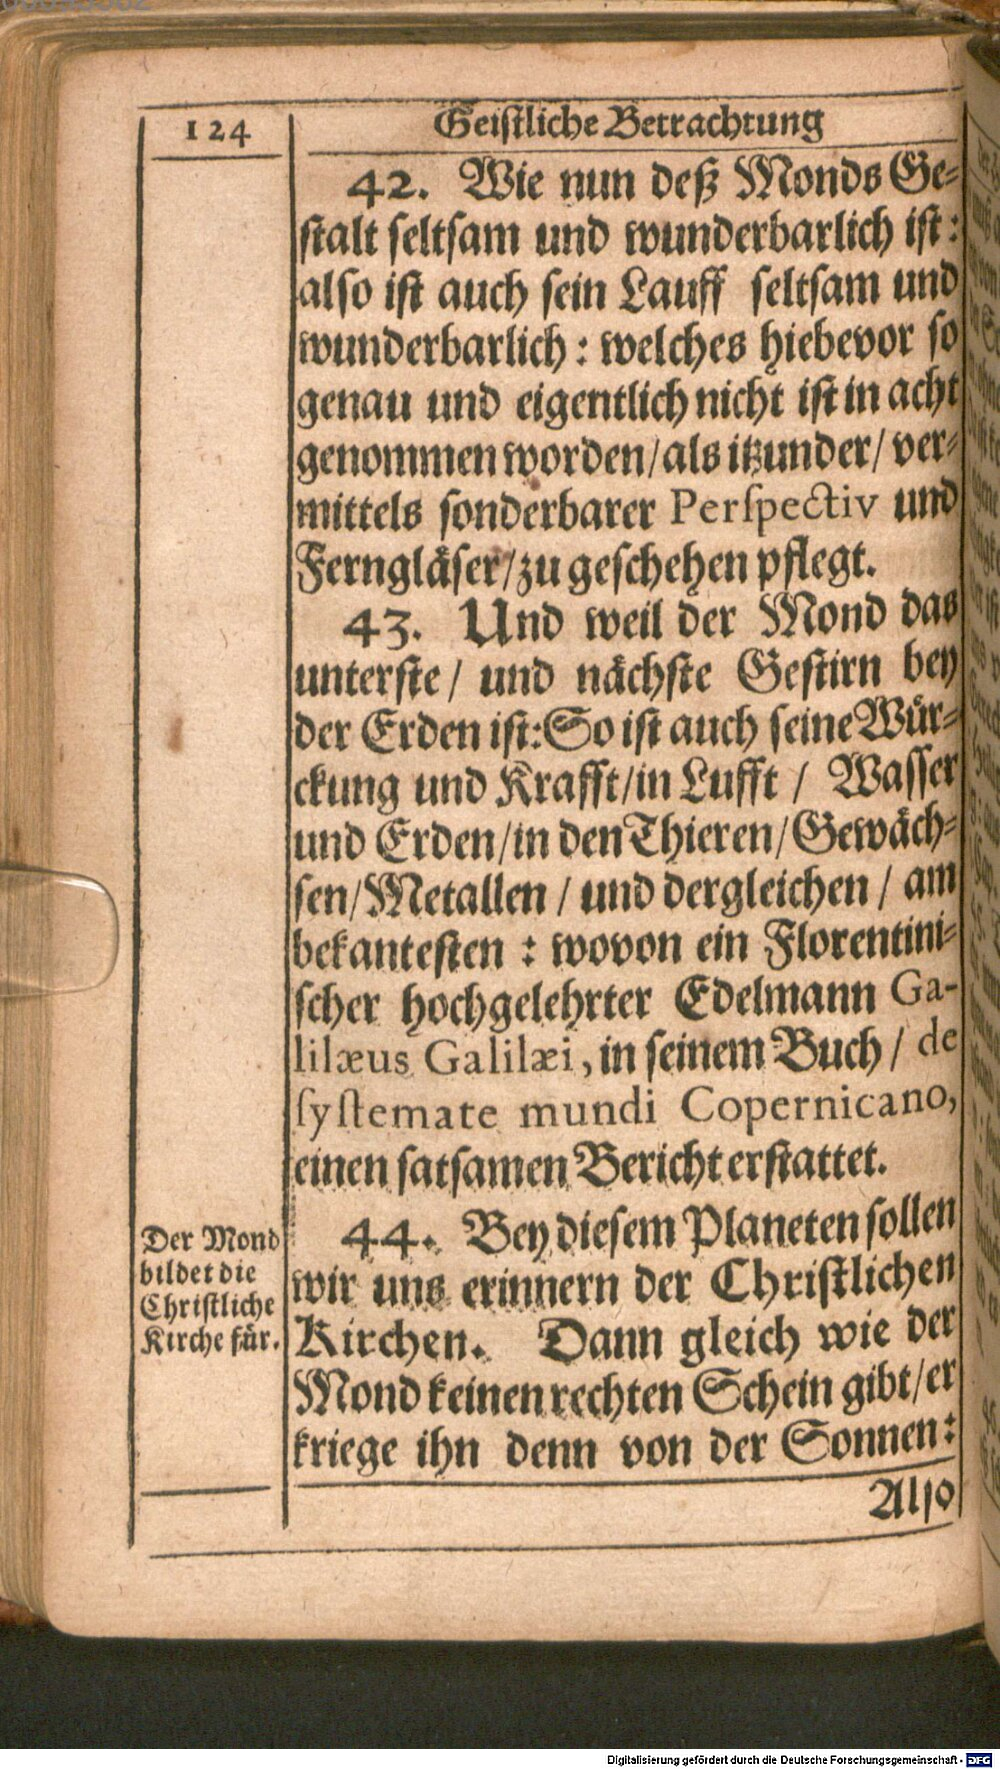 124
Geistliche Betrachtung
42. Wie nun deß Monds Ge-
stalt seltsam und wunderbarlich ist:
also ist auch sein Lauff seltsam und
wunderbarlich: welches hiebevor so
genau und eigentlich nicht ist in acht
genommen worden/ als itzunder/ ver-
mittels sonderbarer Perspectiv und
Ferngläser/ zu geschehen pflegt.
43. Und weil der Mond das
unterste/ und nächste Gestirn bey
der Erden ist: So ist auch seine Wür-
ckung und Krafft/ in Lufft/ Wasser
und Erden/ in den Thieren/ Gewäch-
sen/ Metallen/ und dergleichen/ am
bekantesten: wovon ein Florentini-
scher hochgelehrter Edelmann Ga-
lilæus Galilæi, in seinem Buch/ de
systemate mundi Copernicano,
einen satsamen Bericht erstattet.
Der Mond
bildet die
Christliche
Kirche für.
44. Bey diesem Planeten sollen
wir uns erinnern der Christlichen
Kirchen. Dann gleich wie der
Mond keinen rechten Schein gibt/ er
kriege ihn denn von der Sonnen:
Also
Digitalisierung gefördert durch die Deutsche Forschungsgemeinschaft - DFG